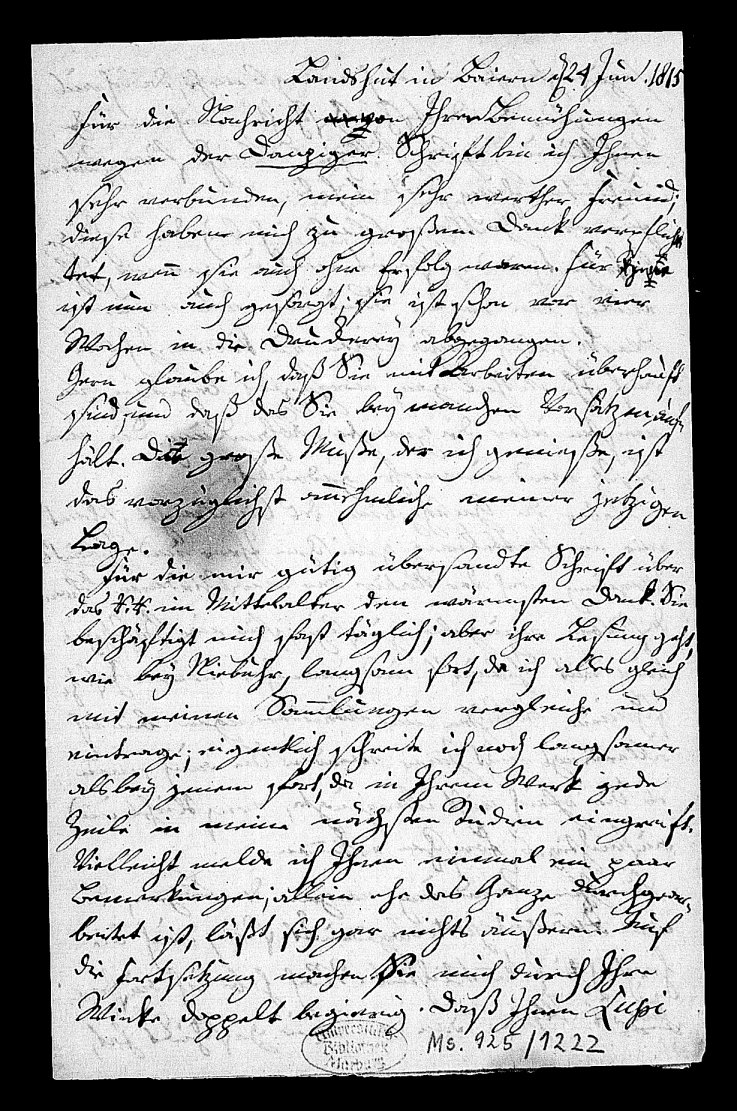 Landshut in Baiern d 24 Jun. 1815
Für die Nachricht von Ihren Bemühungen
wegen der Danziger Schrift bin ich Ihnen
sehr verbunden, mein sehr werther Freund;
diese haben mich zu großem Dank verpflich
tet, wenn sie auch ohne Erfolg waren. Für
ist nun auch gesorgt; sie ist schon vor vier
Wochen in die Druckerey abgegangen.
Gern glaube ich, daß Sie mit Arbeiten überhäuft
sind, und daß das Sie bey manchen Vorsätzen auf-
hält. Die große Muße, der ich genieße, ist
das vorzüglichst annehmliche meiner jetzigen
Lage.
Für die mir gütig übersandte Schrift über
das R. R. im Mittelalter den wärmsten Dank. Sie
beschäftigt mich fast täglich; aber ihre Lesung geht,
wie bey Niebuhr, langsam fort, da ich alles gleich
mit meinen Sammlungen vergleiche und
eintrage; eigentlich schreite ich noch langsamer
als bey jenem fort, da in Ihrem Werk jede
Zeile in meine nächsten Studien eingreift.
Vielleicht melde ich Ihnen einmal ein paar
Bemerkungen; allein ehe das Ganze durchgear-
beitet ist, läßt sich gar nichts äußern. Auf
die Fortsetzung machen Sie mich durch Ihre
Winke doppelt begierig. Daß Ihnen Lupi
Universitäts
Bibliothek
Marburg
Ms. 925/1222